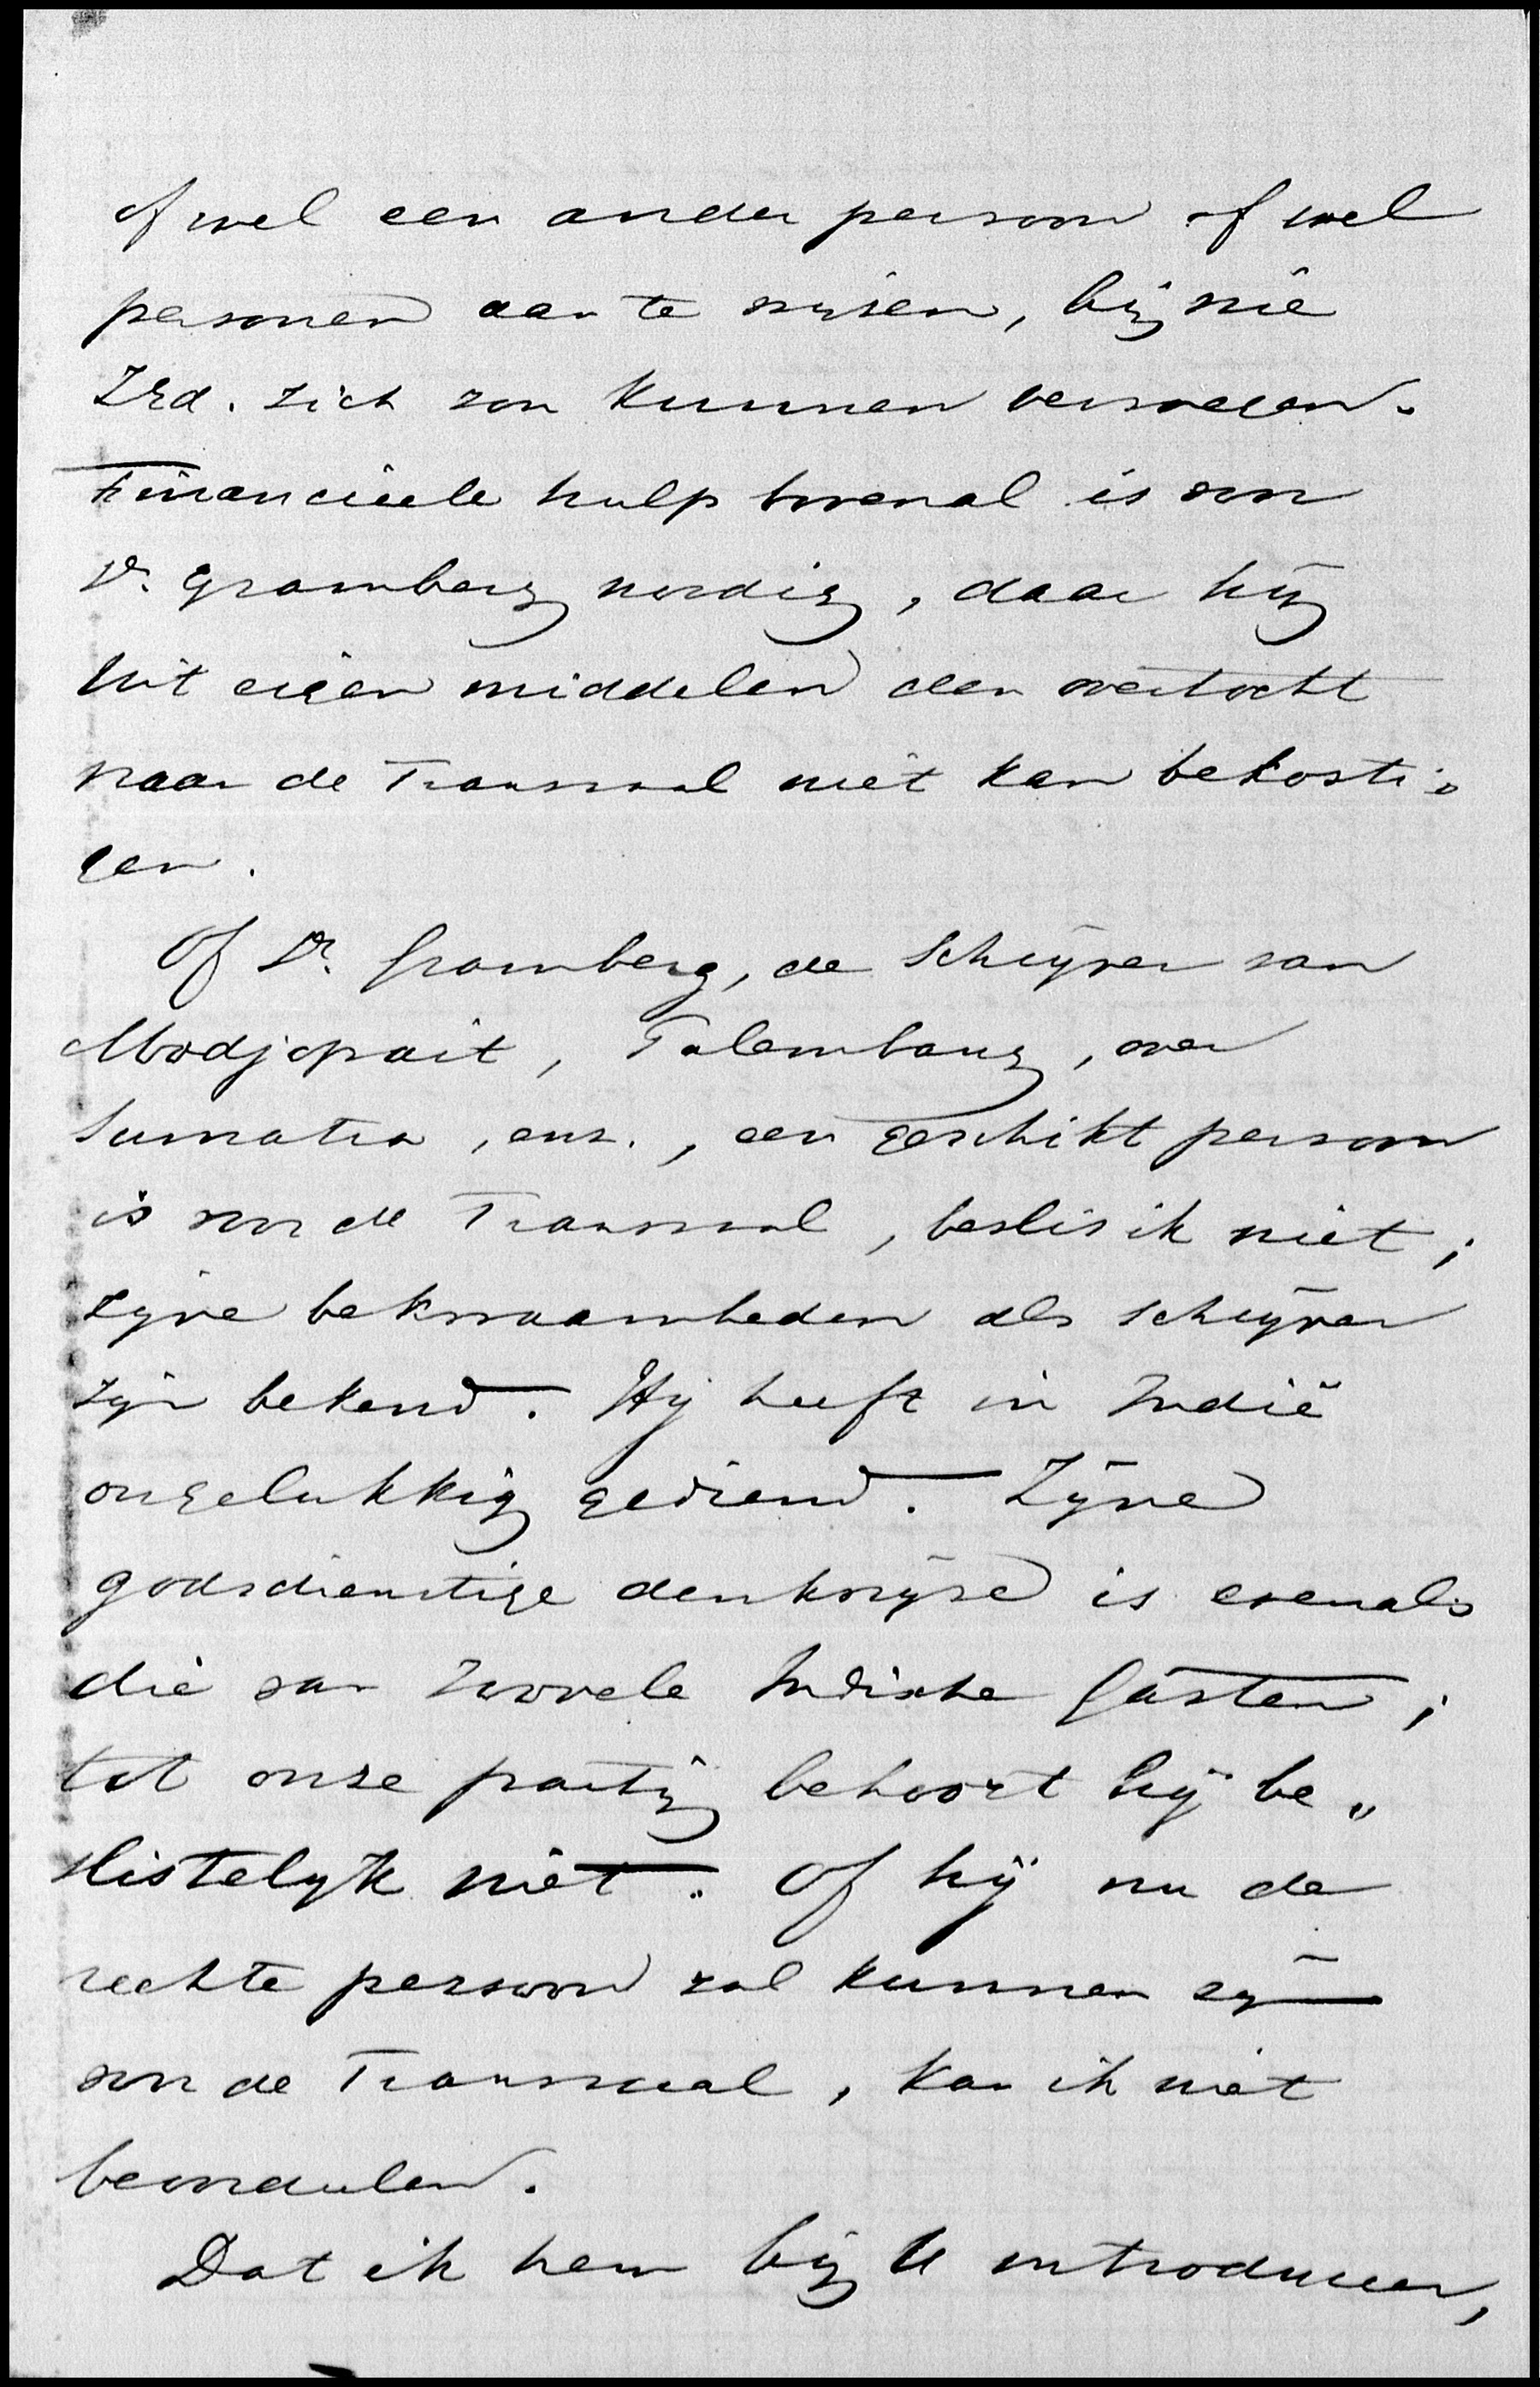 of wel een ander persoon of wel
personen aan te wijzen, bij wie
ZEd. zich zou kunnen vervoegen.
Financieele hulp bovenal is voor
Dr. Gramberg noodig, daar hij
uit eigen middelen den overtocht
naar de Transvaal niet kan bekosti„
gen.
Of Dr. Gramberg, de schrijver van
Modjopait, Palembang, over
Sumatra, enz., een geschikt persoon
is voor de Transvaal, beslis ik niet;
zijne bekwaamheden als schrijver
zijn bekend. Hij heeft in Indië
ongelukkig gediend. Zijne
godsdienstige denkwijze is evenals
die van zoovele Indische Gasten;
tot onze partij behoort hij be„
slistelijk niet. Of hij nu de
rechte persoon zal kunnen zijn
voor de Transvaal, kan ik niet
beoordeelen.
Dat ik hem bij U introduceer,